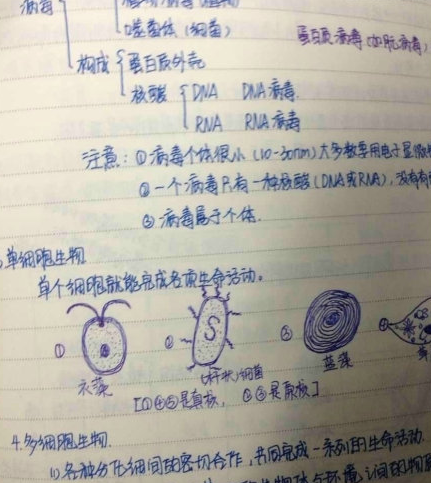 病毒
噬菌体（细菌）
蛋白质病毒（如朊病毒）
构成 蛋白质外壳
核酸 DNA DNA病毒.
RNA RNA病毒
注意：①病毒个体很小（10-30nm）大多数要用电子显微
②一个病毒只有一种核酸（DNA或RNA），没有
③病毒属于个体.
单细胞生物
单个细胞就能完成各项生命活动。
① ② S ③ ④
衣藻 （杆状）细菌 蓝藻
[①④⑤是真核， ②③是原核]
4.多细胞生物.
(1)各种分化细胞间的密切合作，共同完成一系列的生命活动.